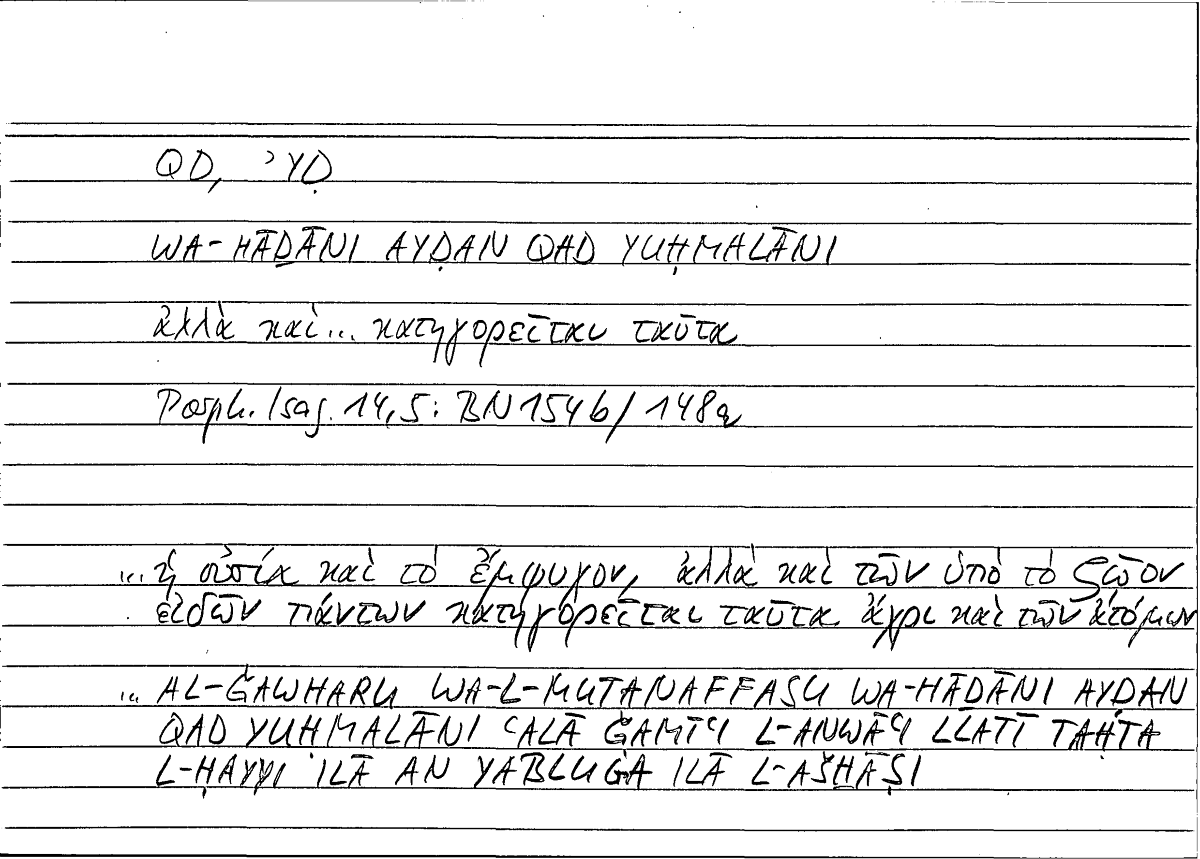 QD, ʾYḌ
WA-HĀḎĀNI AYḌAN QAD YUḤMALĀNI
ἀλλὰ καὶ... κατηγορεῖται ταῦτα
Porph. Isag. 14,5: BN 154b/148a
... ἡ οὐσία καὶ τὸ ἔμψυχον, ἀλλὰ καὶ τῶν ὑπὸ τὸ ζῶον
εἰδῶν πάντων κατηγορεῖται ταῦτα ἄχρι καὶ τῶν ἀτόμων
... AL-ǦAWHARU WA-L-MUTANAFFASU WA-HĀḎĀNI AYḌAN
QAD YUHMALĀNI ʿALĀ ǦAMĪʿI L-ANWĀʿI LLATĪ TAḤTA
L-ḤAYYI ILĀ AN YABLUĠA ILĀ L-AŠḪĀṢI